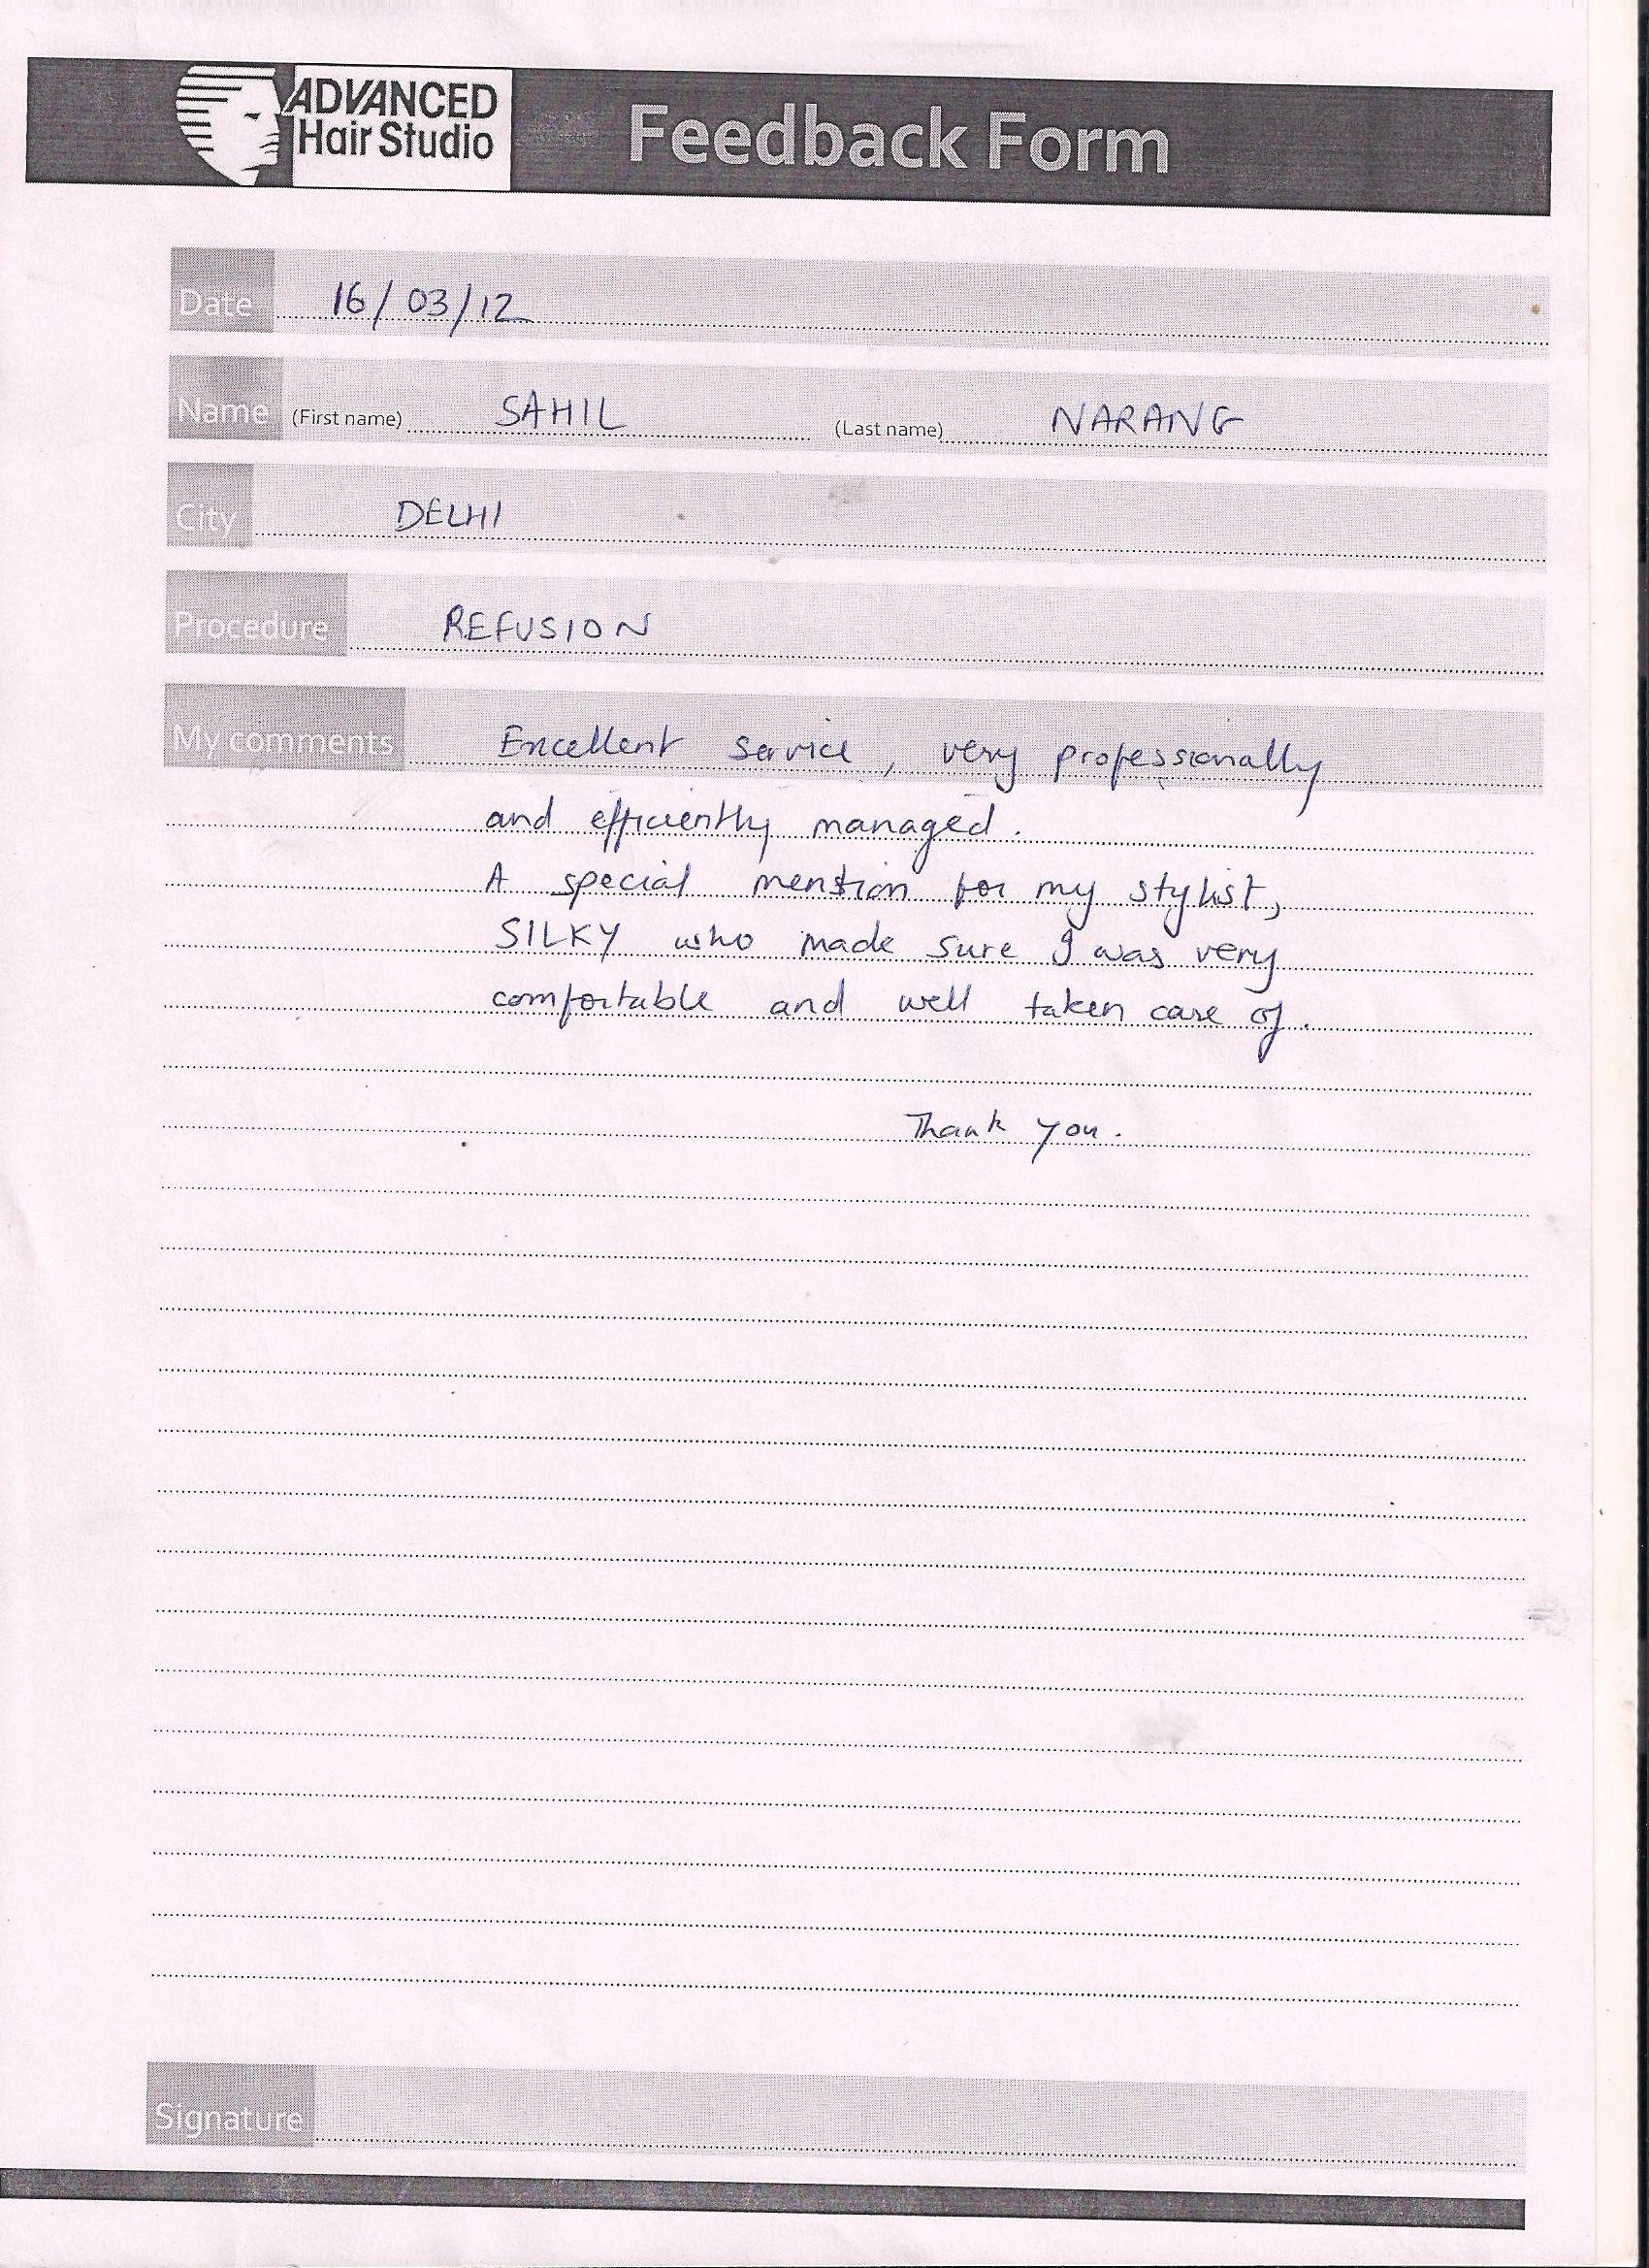 ADVANCED
Hair Studio
Feedback Form
Date 16/03/12
Name (First name) SAHIL (Last name) NARANG
City DELHI
Procedure REFUSION
My comments Excellent service, very professionally
and efficiently managed.
A special mention for my stylist,
SILKY who made sure I was very
comfortable and well taken care of.
Thank you.
Signature